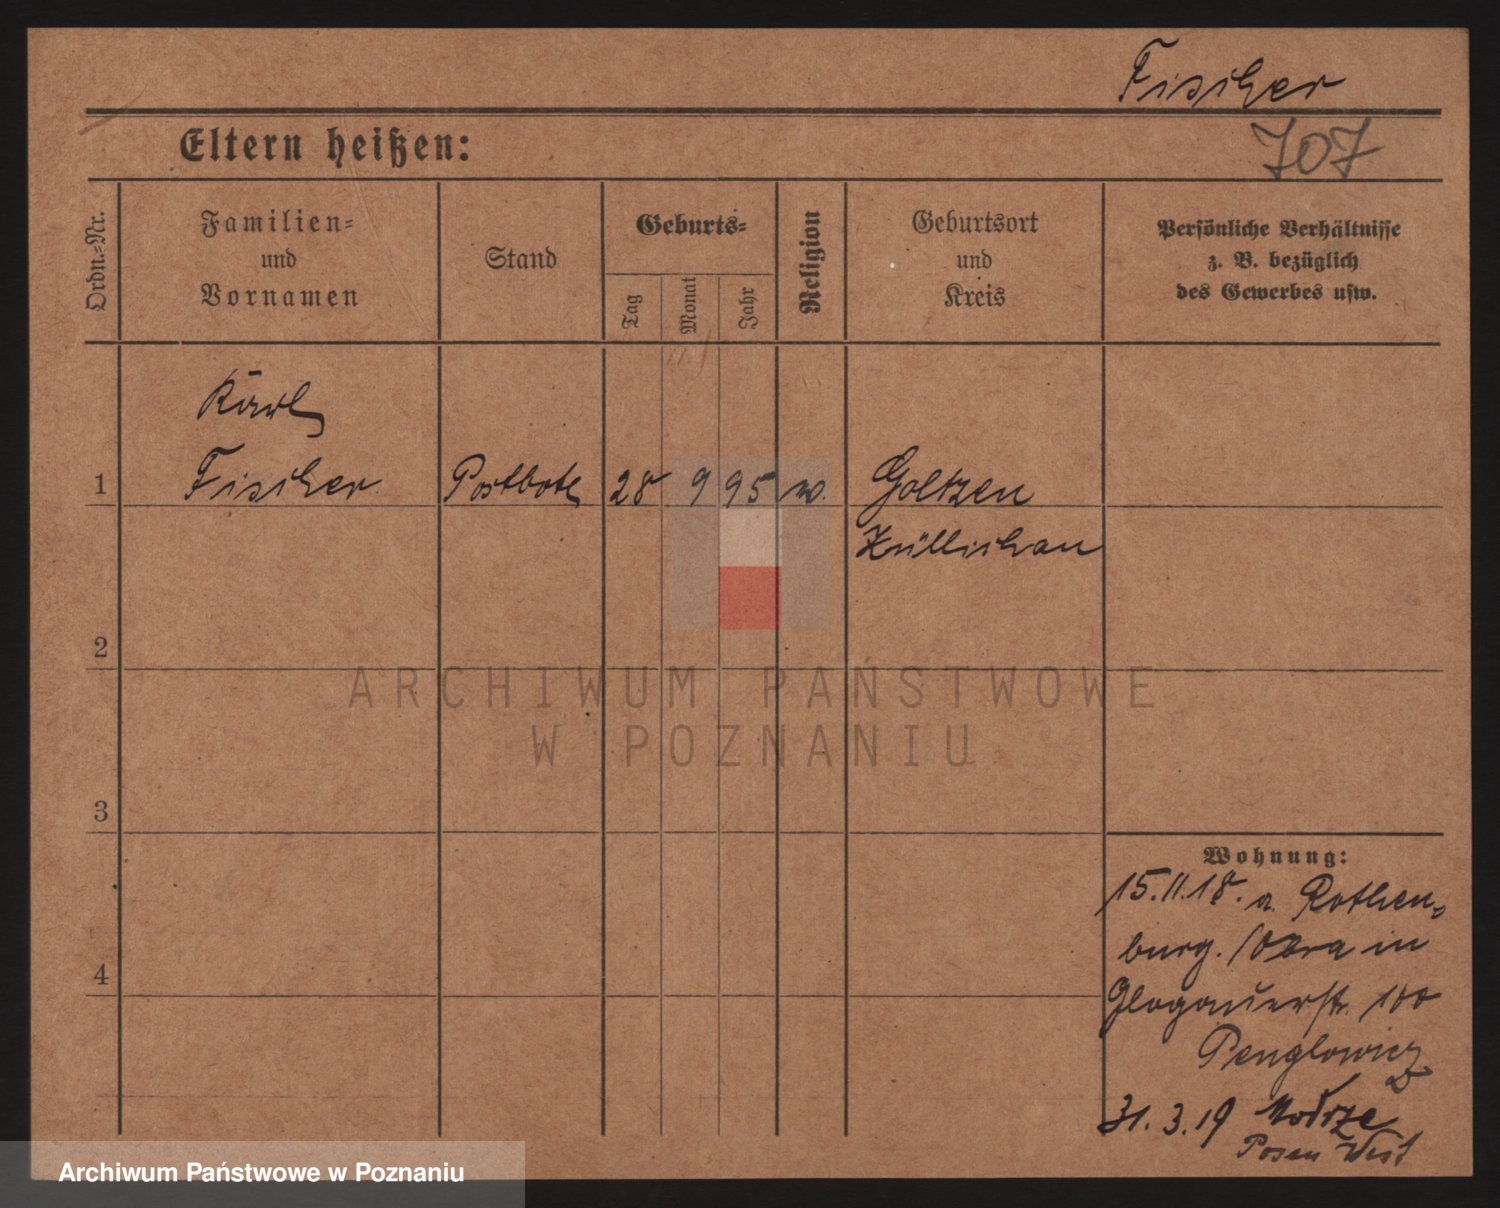 Fischer
Eltern heißen:
707
Ordn.=Nr.
Familien=
und
Vornamen
Stand
Geburts=
Tag
Monat
Jahr
Religion
Geburtsort
und
Kreis
Persönliche Verhältnisse
z. B. bezüglich
des Gewerbes usw.
Karl
1 Fischer Postbote 28 9 95 Goltzen
Züllichau
2
3
4
Wohnung:
15.11.18. a. Rothen=
burg. /Obra in
Glogauerstr. 100
31.3.19 Modrze
Posen West
ARCHIWUM PAŃSTWOWE
W POZNANIU
Archiwum Państwowe w Poznaniu